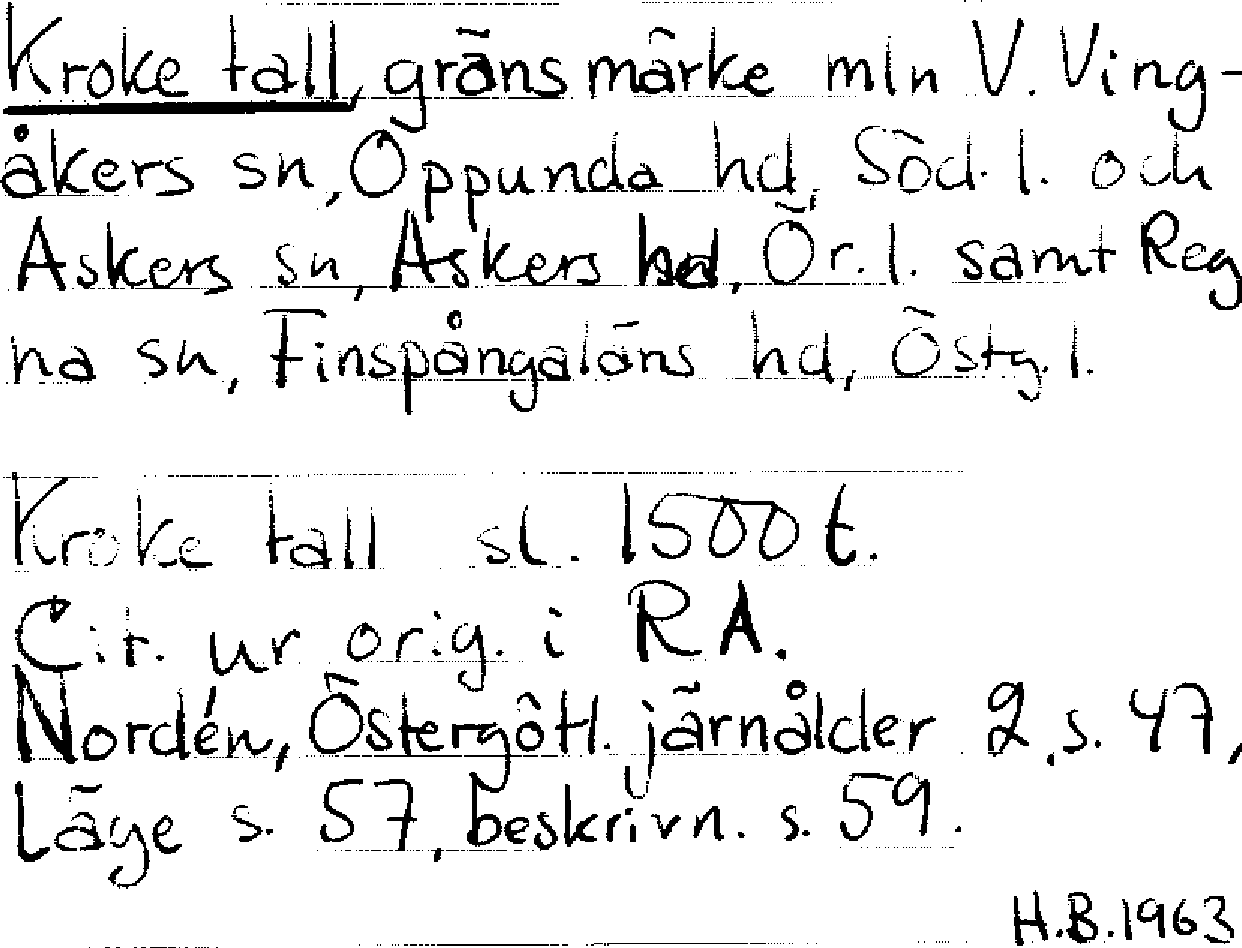 Kroke tall, gränsmärke mln V. Ving-
åkers sn, Oppunda hd, Söd. l. och
Askers sn, Askers hd, Ör. l. samt Reg
na sn, Finspångaläns hd, Östg. l.
Kroke tall sl. 1500 t.
Cit. ur orig. i RA.
Nordén, Östergötl. järnålder 2, s. 47,
Läge s. 57, beskrivn. s. 59.
H.B.1963